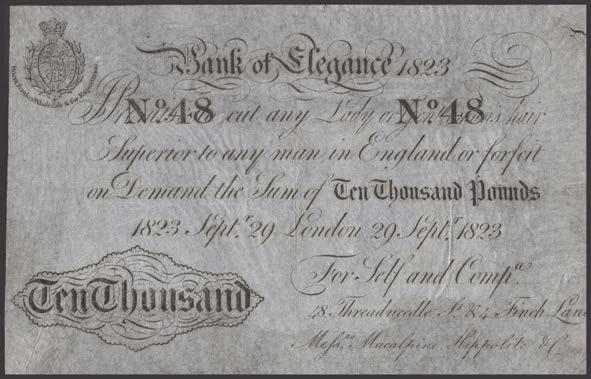 Bank of Elegance 1823
No 48 cut any Lady or Gentleman's hair No 48
Superior to any man in England or forfeit
on Demand the Sum of Ten Thousand Pounds
1823 Septr. 29 London 29 Septr. 1823
For Self and Compa.
Ten Thousand
48 Threadneedle St. & 4 Finch Lane
Messrs. Macalpine Hippolite & Co.